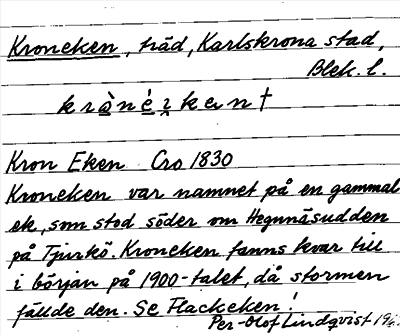 Kroneken, träd, Karlskrona stad,
Blek. l.
Kron Eken Cro 1830
Kroneken var namnet på en gammal
ek, som stod söder om Hegnnäsudden
på Tjurkö. Kroneken fanns kvar till
i början på 1900-talet, då stormen
fällde den. Se Flackeken!
Per-Olof Lindqvist